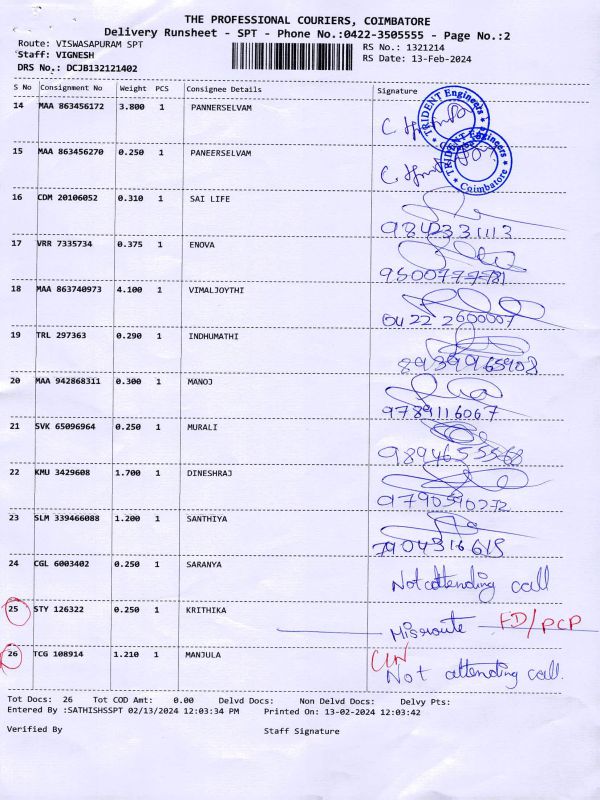 THE PROFESSIONAL COURIERS, COIMBATORE
Delivery Runsheet - SPT - Phone No.:0422-3505555 - Page No.:2
Route: VISWASAPURAM SPT RS No.: 1321214
Staff: VIGNESH RS Date: 13-Feb-2024
DRS No.: DCJB132121402
S No Consignment No Weight PCS Consignee Details Signature
14 MAA 863456172 3.800 1 PANNERSELVAM
TRIDENT Engineers
15 MAA 863456270 0.250 1 PANEERSELVAM
TRIDENT Engineers
Coimbatore
16 CDM 20106052 0.310 1 SAI LIFE
9842331113
17 VRR 7335734 0.375 1 ENOVA
18 MAA 863740973 4.100 1 VIMALJOYTHI
0422 2600007
19 TRL 297363 0.290 1 INDHUMATHI
20 MAA 942868311 0.300 1 MANOJ
9789116067
21 SVK 65096964 0.250 1 MURALI
22 KMU 3429608 1.700 1 DINESHRAJ
9790590272
23 SLM 339466088 1.200 1 SANTHIYA
7904316615
24 CGL 6003402 0.250 1 SARANYA
Not attending call
25 STY 126322 0.250 1 KRITHIKA
Missroute FD/PCP
26 TCG 108914 1.210 1 MANJULA
Not attending call.
Tot Docs: 26 Tot COD Amt: 0.00 Delvd Docs: Non Delvd Docs: Delvy Pts:
Entered By :SATHISHSSPT 02/13/2024 12:03:34 PM Printed On: 13-02-2024 12:03:42
Verified By Staff Signature